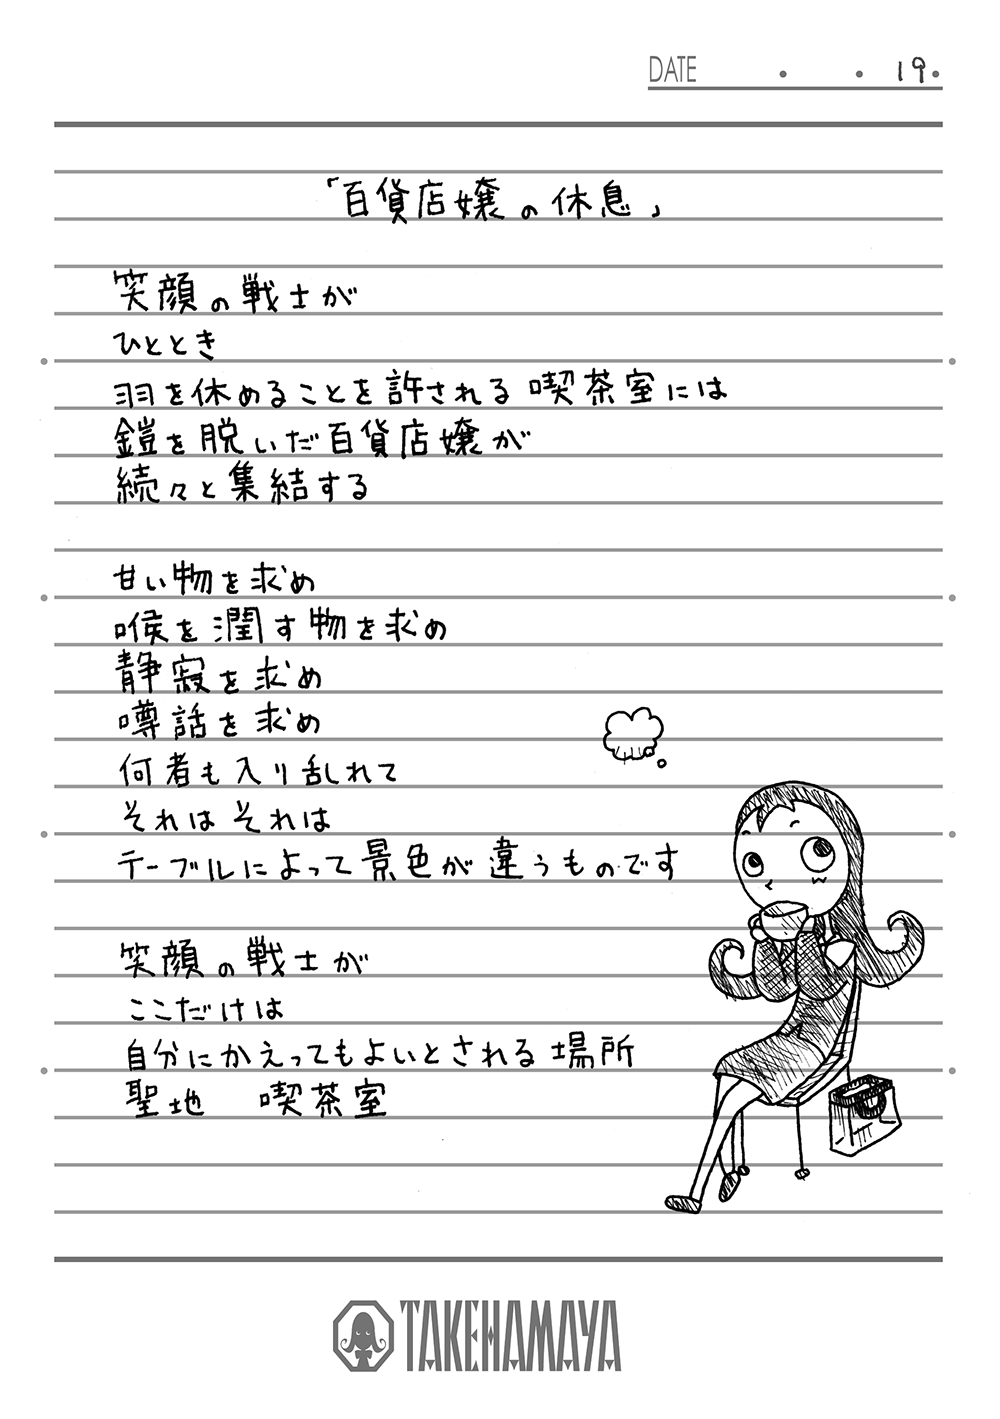 DATE ・ ・ 19・
「百貨店嬢の休息」
笑顔の戦士が
ひととき
羽を休めることを許される喫茶室には
鎧を脱いだ百貨店嬢が
続々と集結する
甘い物を求め
喉を潤す物を求め
静寂を求め
噂話を求め
何者も入り乱れて
それはそれは
テーブルによって景色が違うものです
笑顔の戦士が
ここだけは
自分にかえってもよいとされる場所
聖地 喫茶室
TAKEHAMAYA